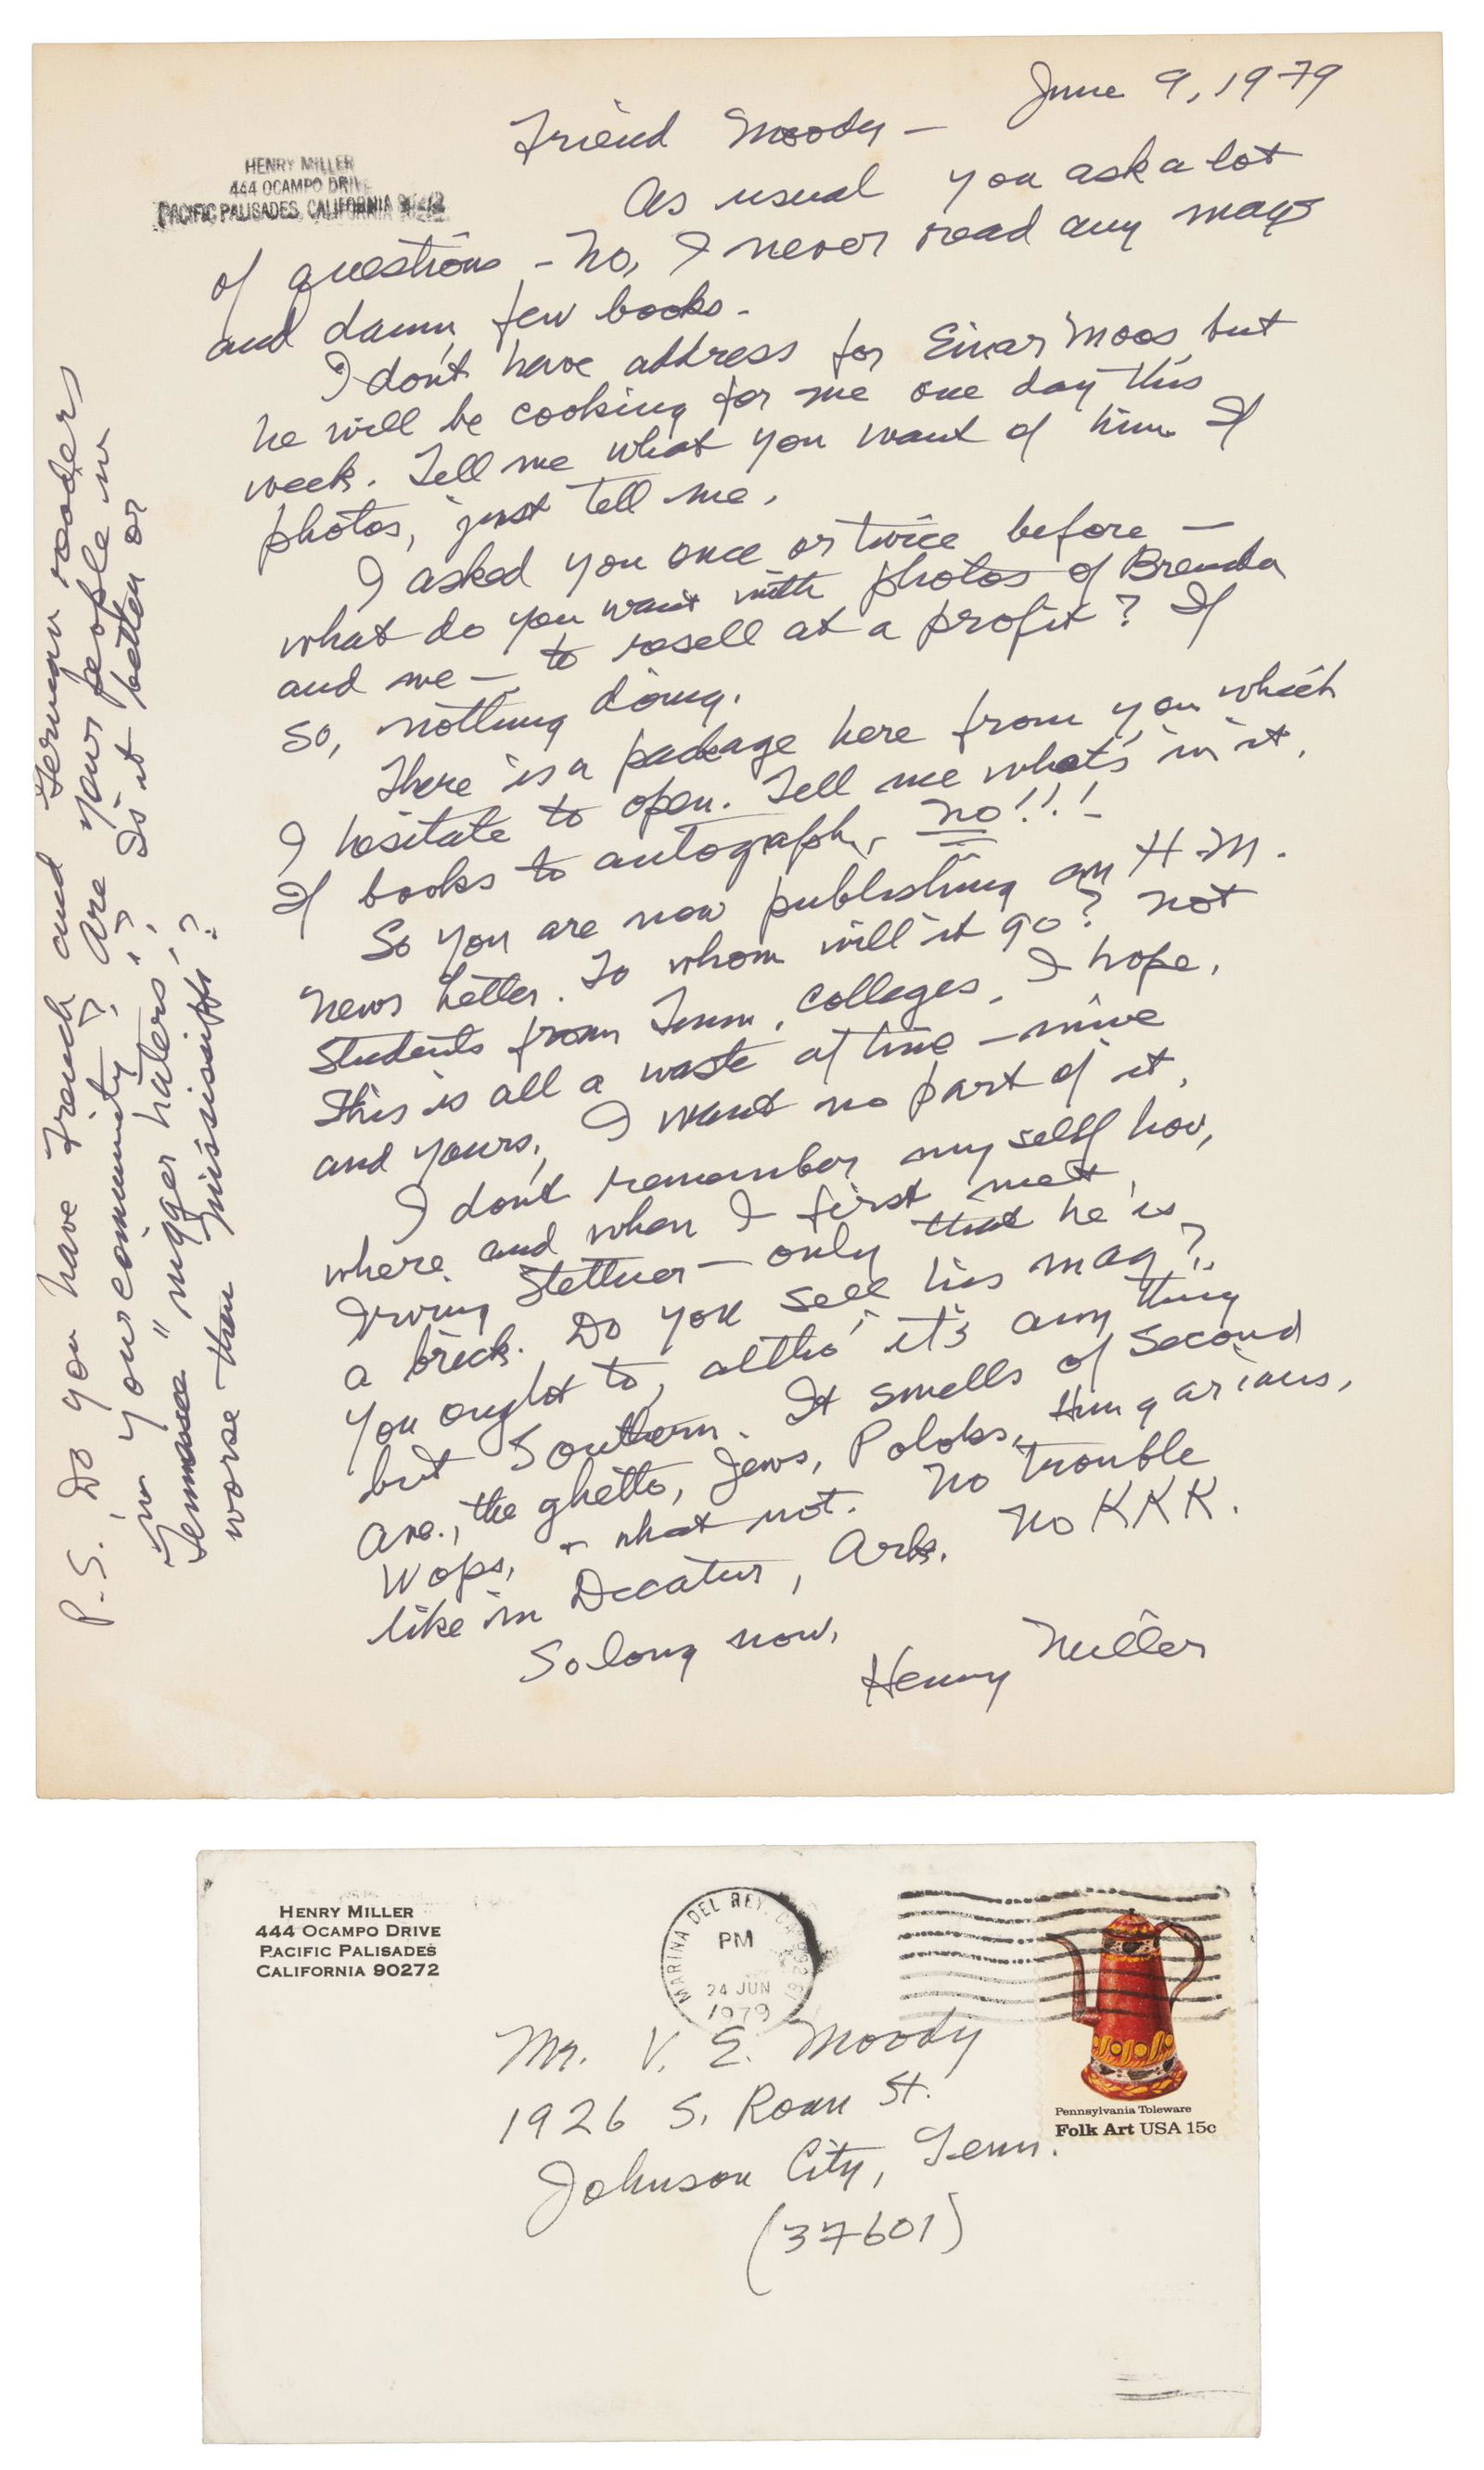 June 9, 1979
Friend Moody —
HENRY MILLER
444 OCAMPO DRIVE
PACIFIC PALISADES, CALIFORNIA
As usual you ask a lot
of questions - No, I never read any mags
and damn few books.
I don't have address for Einar Moos but
he will be cooking for me one day this
week. Tell me what you want of him. If
photos, just tell me.
I asked you once or twice before —
what do you want with photos of Brenda
and me — to resell at a profit? If
so, nothing doing.
There is a package here from you which
I hesitate to open. Tell me what's in it.
If books to autograph, no!!! -
So you are now publishing an H.M.
News Letter. To whom will it go? Not
students from Tenn. colleges, I hope.
This is all a waste of time — mine
and yours, I want no part of it.
I don't remember my self how,
where and when I first met
Irving Stettner — only that he is
a brick. Do you sell his mag?
You ought to, altho' it's any thing
but Southern. It smells of Second
Ave., the ghetto, Jews, Poloks, Hungarians,
Wops, + what not. No trouble
like in Decatur, Ark. No KKK.
So long now,
Henry Miller
P.S. Do you have French and German readers
in your community? Are your people in
Tennessee "nigger haters"? Is it better or
worse than Mississippi?
HENRY MILLER
444 OCAMPO DRIVE
PACIFIC PALISADES
CALIFORNIA 90272
MARINA DEL REY, CA
PM
24 JUN
1979
Mr. V. E. Moody
1926 S. Roan St.
Johnson City, Tenn.
(37601)
Pennsylvania Toleware
Folk Art USA 15c